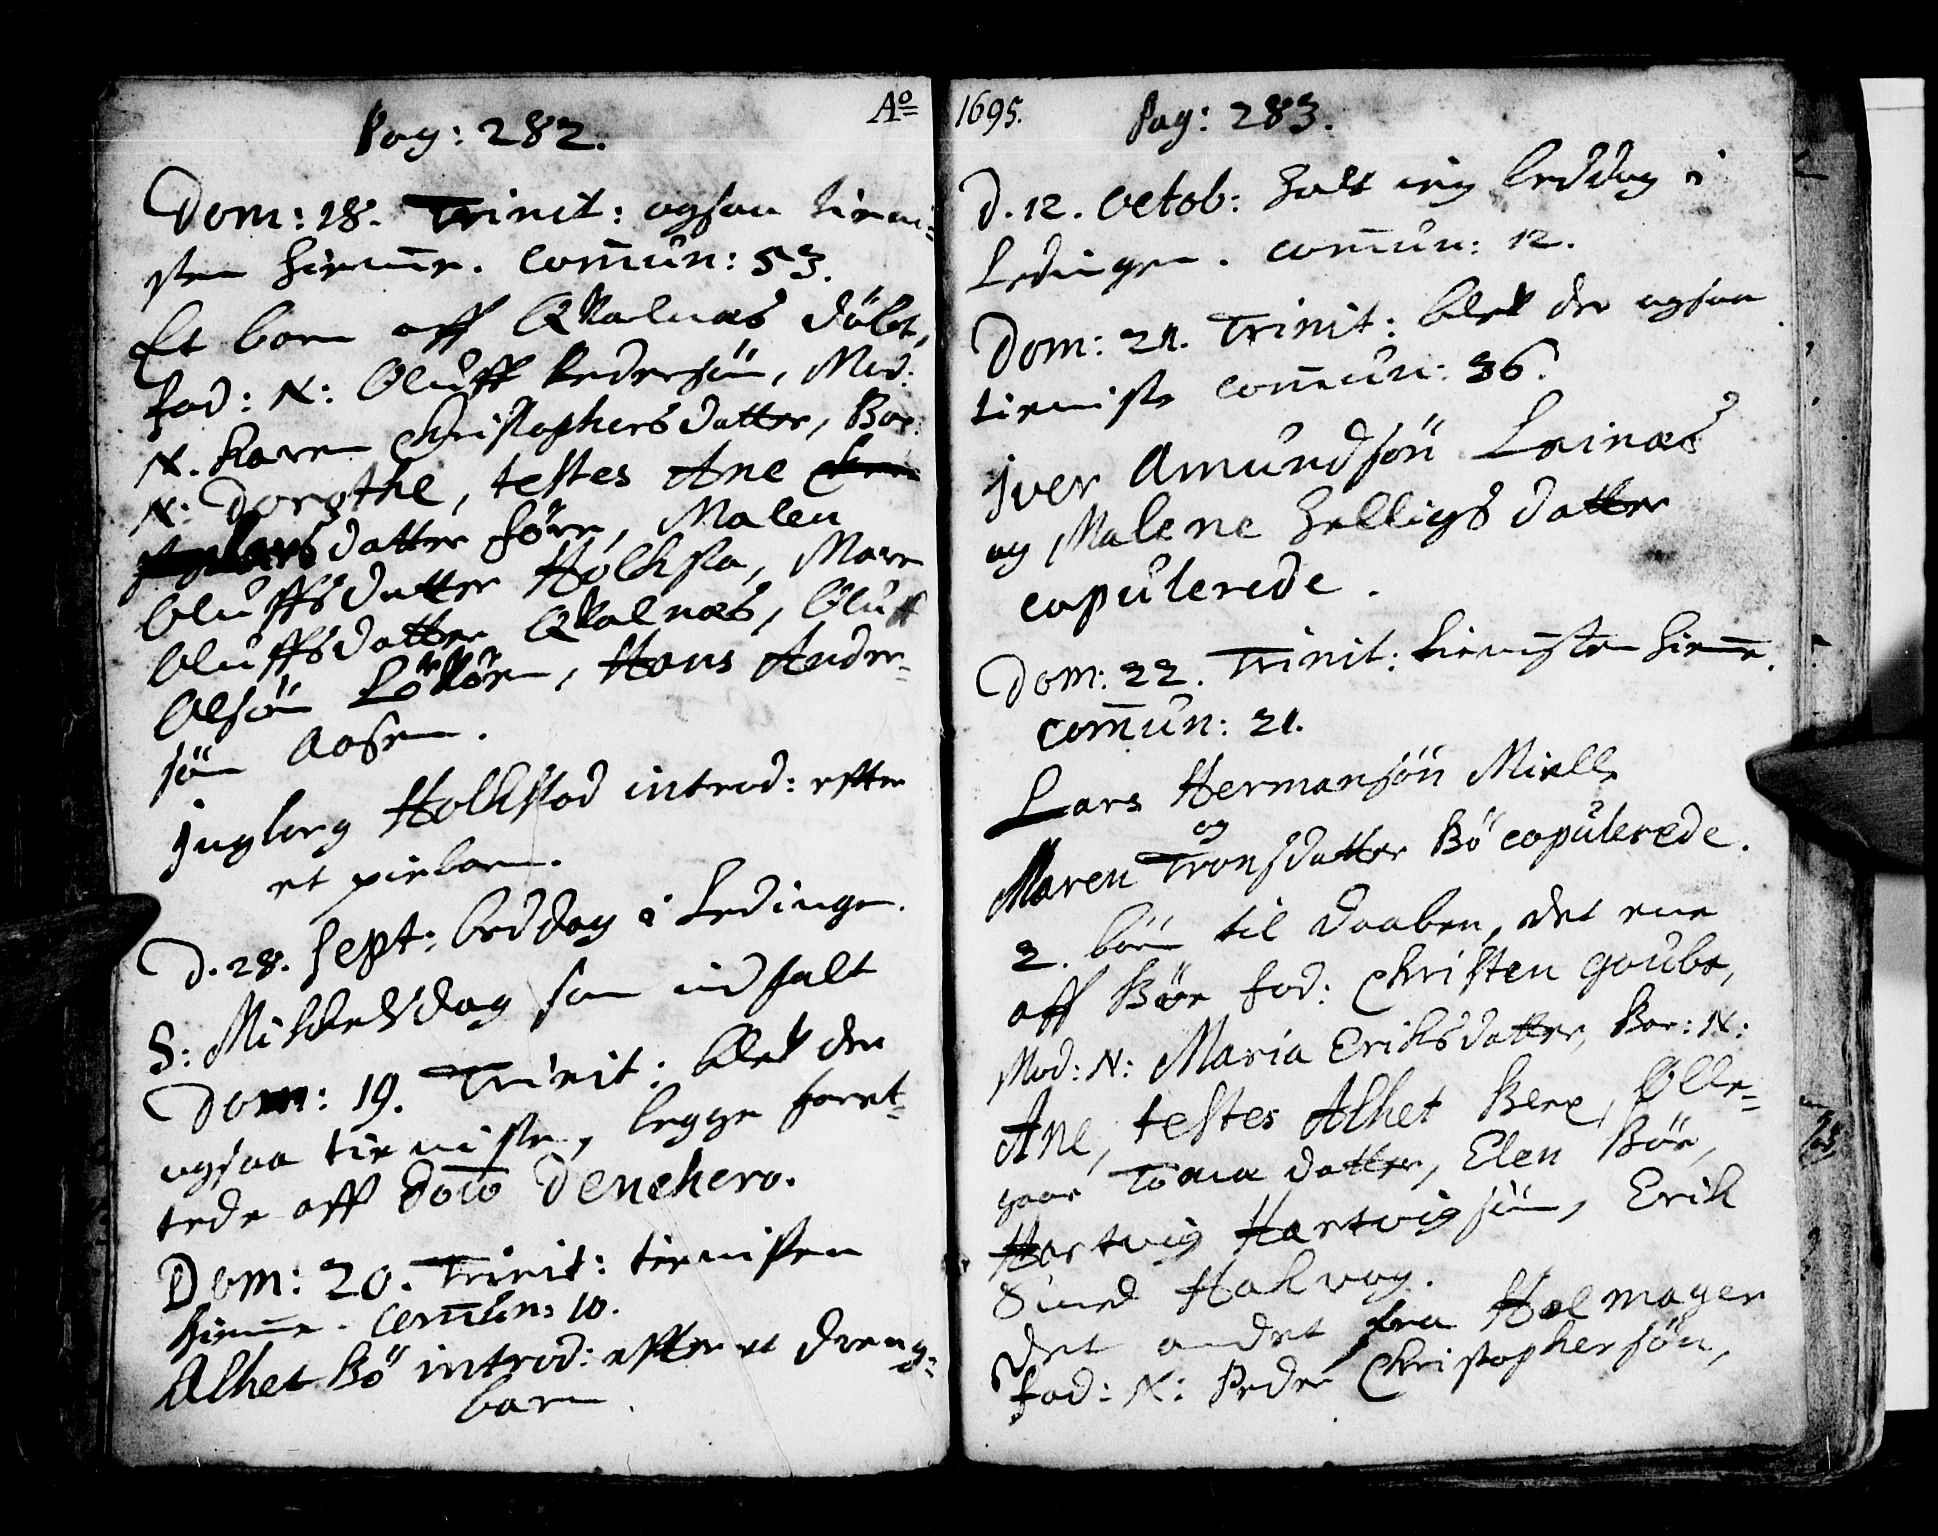 Pag: 282.
Aº
Dom: 18. Trinit: ogsaa tieni-
sten hiemme. Com̄un: 53.
Et barn aff Qvalnæs döbt,
fad: N: Oluff Pedersön, Mod:
N. Karen Christophersdatter, Bar:
N: Dorothe, testes Ane
Larsdatter före, Malen
Oluffsdatter Holksta, Maren
Oluffsdatter Qvalnæs, Oluff
Olsön Lökören, Hans Ander-
sön Aasen.
Jngborg Holkstad introd: efter
et piebarn.
D. 28. Sept: beddag i Ledingen.
S: Mikkelsdag som indfalt
Dom: 19. Trinit: blef der
ogsaa tieniste, begge forret-
tede aff Doīo Denehero.
Dom: 20. Trinit: tienisten
hiemme. Com̄un: 10.
Alhet Bö introd: effter et dreng-
barn.
1695.
Pag: 283.
D. 12. Octob: holt ieg beddag i
Ledingen. Com̄un: 12.
Dom: 21. Trinit: blef der ogsaa
tieniste com̄un: 36.
Jver Amundsön Leinæs
og Malene Helligsdatter
copulerede.
Dom: 22. Trinit: tienisten hiemme.
Com̄un: 21.
Lars Hermansön Mielle
og
Maren Tronsdatter Bö copulerede.
2. börn til daaben, det ene
aff Böe fad: Christen goube,
Mod: N: Maria Eriksdatter, Bar: N:
Ane, testes Alhet Bee, Olle-
gaar datter, Elen Böe,
Hartvig Hartvigsön, Erik
Suend Halvog.
Det andet fra Helmager
fad: N: Peder Christophersön,